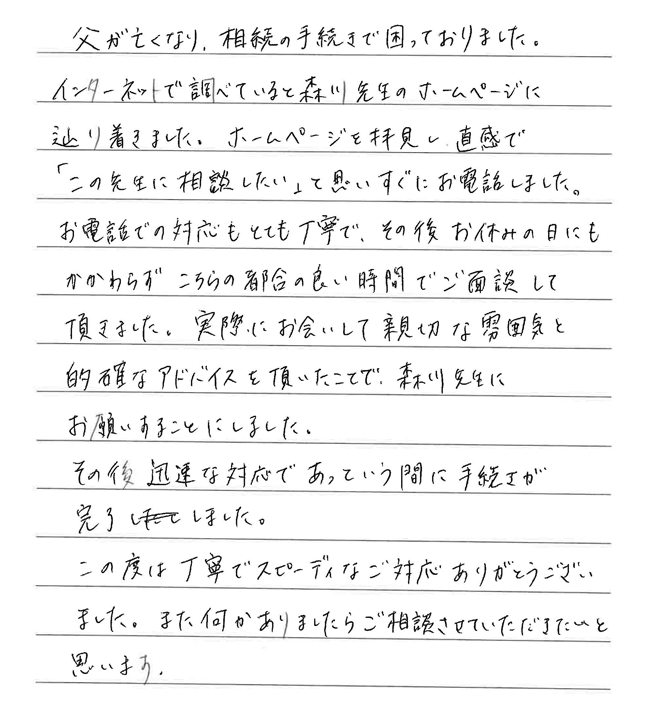 父が亡くなり、相続の手続きで困っておりました。
インターネットで調べていると森川先生のホームページに
辿り着きました。ホームページを拝見し、直感で
「この先生に相談したい」と思いすぐにお電話しました。
お電話での対応もとても丁寧で、その後お休みの日にも
かかわらずこちらの都合の良い時間でご面談して
頂きました。実際にお会いして親切な雰囲気と
的確なアドバイスを頂いたことで、森川先生に
お願いすることにしました。
その後迅速な対応であっという間に手続きが
完了しました。
この度は丁寧でスピーディなご対応ありがとうござい
ました。また何かありましたらご相談させていただきたいと
思います。